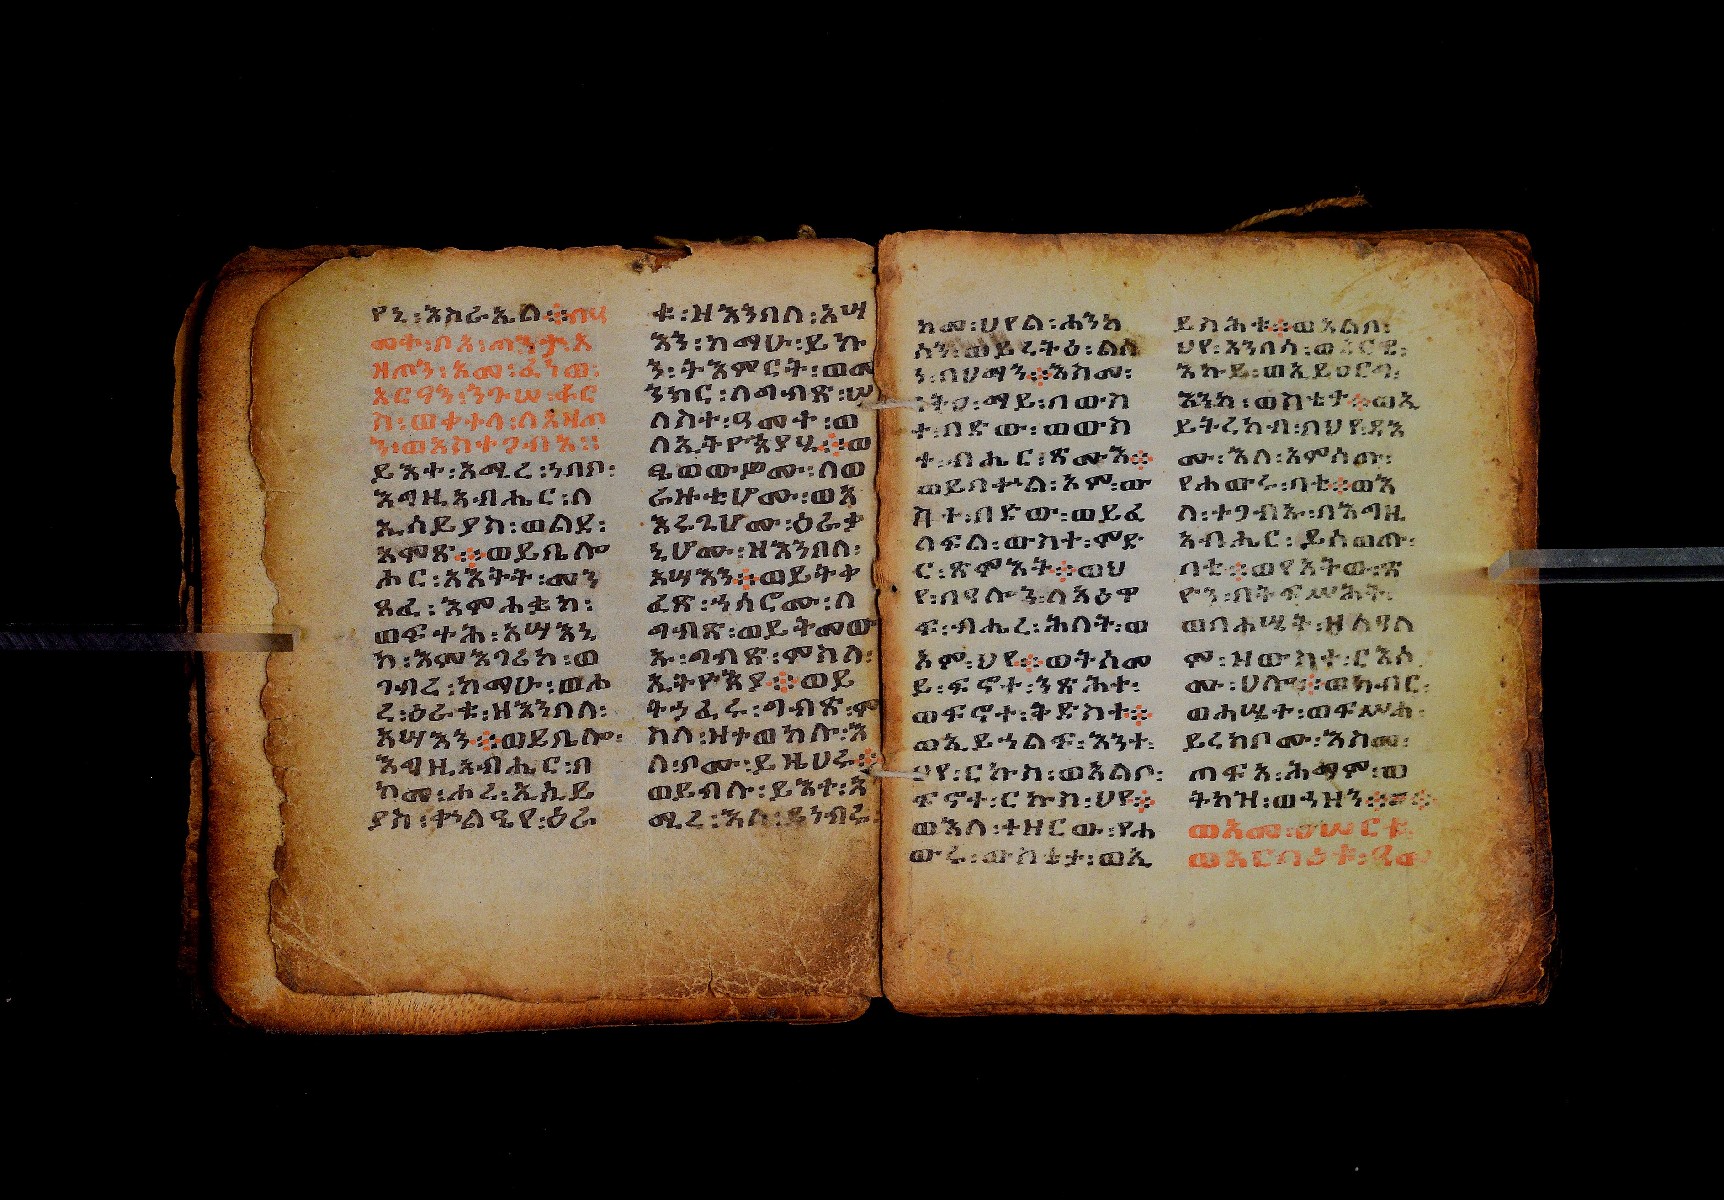 የኒ፡እስራኤል፨በዓ
መት፡ቦአ፡ጠናቶአ
ዛጦን፡አመ፡ፈነወ፡
አርዓን፡ንጉሠ፡ፋር
ስ፡ወቀተላ፡ለአዛጦ
ን፡ወአስተጋብአ።
ይእተ፡አሚረ፡ነበበ፡
እግዚአብሔር፡ለ
ኢሳይያስ፡ወልደ፡
አሞጽ፨ወይቤሎ
ሖር፡አእትት፡መን
ጸፈ፡እምሐቌከ፡
ወፍታሕ፡አሣእኒ
ከ፡እምእገሪከ፡ወ
ገብረ፡ከማሁ፡ወሖ
ረ፡ዕራቁ፡ዘእንበለ፡
አሣእን፨ወይቤሎ፡
እግዚአብሔር፡በ
ከመ፡ሖረ፡ኢሳይ
ያስ፡ቀኍልዔየ፡ዕራ
ቁ፡ዘእንበለ፡አሣ
እን፡ከማሁ፡ይኩ
ን፡ትእምርት፡ወመ
ንክር፡ለግብጽ፡ሠ
ለስተ፡ዓመተ፡ወ
ለኢትዮጵያ፨ወ
ፄወውዎሙ፡ለወ
ራዙቲሆሙ፡ወአ
እሩጊሆሙ፡ዕራቃ
ኒሆሙ፡ዘእንበለ፡
አሣእን፨ወይትቀ
ፈጽ፡ኀሳሮሙ፡ለ
ግብጽ፡ወይትመው
ኡ፡ግብጽ፡ምስለ፡
ኢትዮጵያ፨ወይ
ትኃፈሩ፡ግብጽ፡ም
ስለ፡ዝተወከሉ፡እ
ለ፡ቦሙ፡ይዜሀሩ፨
ወይብሉ፡ይእተ፡አ
ሚረ፡እለ፡ይነብሩ፡
ከመ፡ሀየል፡ሐንካ
ስን፡ወይረትዕ፡ልሳ
ነ፡በሀማን፨እስመ፡
ነቅዐ፡ማይ፡በውስ
ተ፡በድው፡ወውስ
ተ፡ብሔር፡ጽሙእ፨
ወይበቍል፡እም፡ው
ስተ፡በድው፡ወይፈ
ለፍል፡ውስተ፡ምድ
ር፡ጽምእት፨ወህ
የ፡በዓሎን፡ለአዕዋ
ፍ፡ብሔረ፡ሕለት፡ወ
እም፡ህየ፨ወትሰመ
ይ፡ፍኖተ፡ንጽሕት፡
ወፍኖተ፡ትድስት፨
ወኢይኀልፍ፡እንተ፡
ህየ፡ርኩስ፡ወአልቦ፡
ፍኖተ፡ርኩስ፡ህየ፨
ወእለ፡ተዘርው፡የሐ
ውሩ፡ውስቴታ፡ወኢ
ይስሕቱ፨ወአልቦ፡
ህየ፡አንበሳ፡ወአርዌ፡
እኩይ፡ወኢይዐርግ፡
እንከ፡ውስቴታ፨ወኢ
ይትረከብ፡በህየ፡ዳእ
ሙ፡እለ፡አምሰጡ፡
የሐውሩ፡ባቲ፨ወእ
ለ፡ተጋብኡ፡በእግዚ
አብሔር፡ይሰወጡ፡
ባቲ፨ወየአትው፡ጽ
ዮን፡በትፍሥሕት፡
ወበሐሤት፡ዘለዓለ
ም፡ዘውስተ፡ርእሶ
ሙ፡ሀሎ፨ወክብር፡
ወሐሤት፡ወፍሥሐ፡
ይረከቦሙ፡እስመ፡
ጠፍአ፡ሕማም፡ወ
ትካዝ፡ወኃዘን፨
ወአመ፡ዐሠርቱ
ወአርባዕቱ፡ዓመ